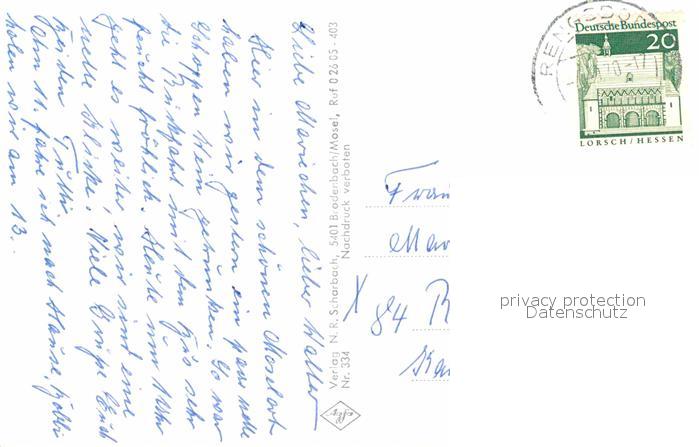 Liebe Mariechen, lieber Walter
Hier in dem schönen Moselort
haben wir gestern ein paar nette
Schoppen Wein getrunken. Es war
die Rückfahrt mit dem Bus sehr
feucht fröhlich. Heute um 11 Uhr
geht es weiter wir sind eine
nette Clique! Viele Grüße Euch
beiden
Am 11. fahre ich nach Hause,
holen wir am 13.
Verlag N. R. Scharbach, 5401 Brodenbach/Mosel, Ruf 0 26 05 - 403
Nachdruck verboten
Nr. 334
RENGSDORF
Deutsche Bundespost
20
LORSCH / HESSEN
Frau
Mar
X 84 R
privacy protection
Datenschutz